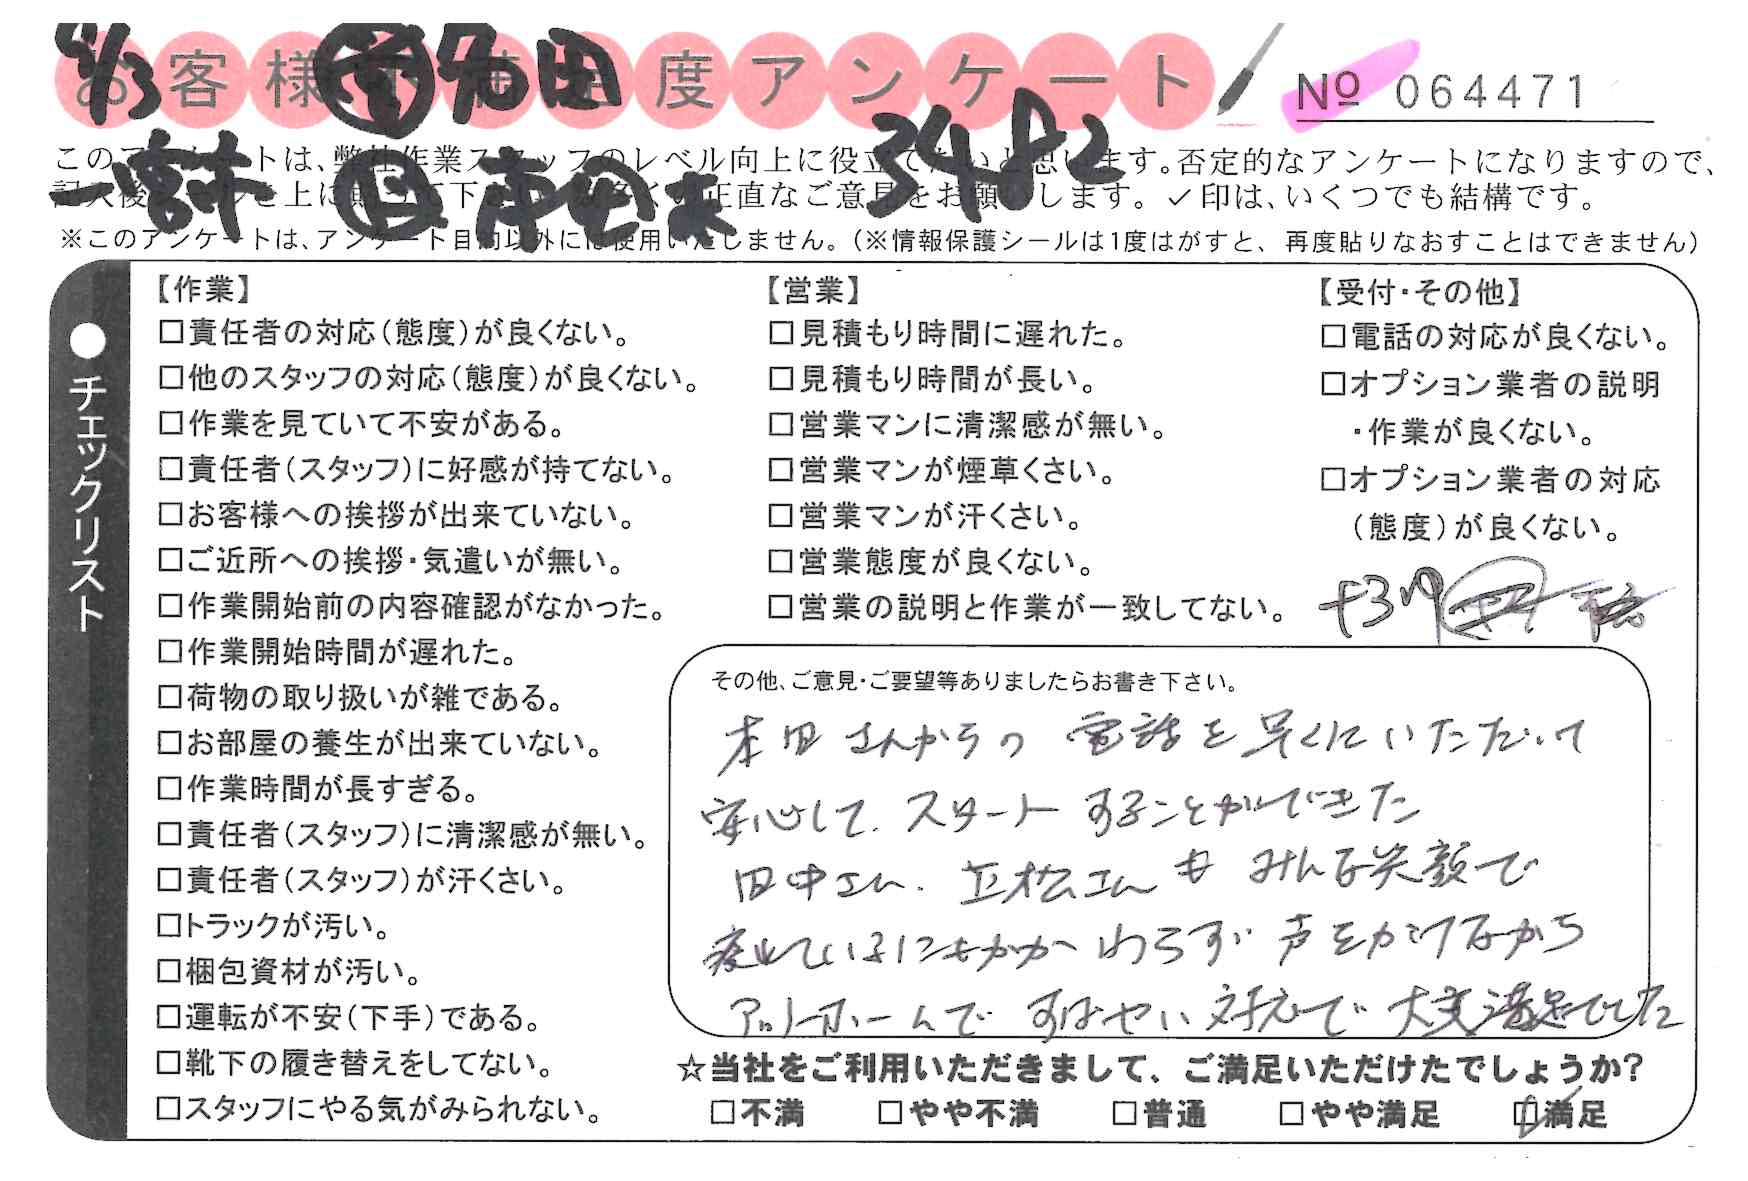 4/13
お客様不満足度アンケート
№ 064471
3482
このアンケートは、弊社作業スタッフのレベル向上に役立てたいと思います。否定的なアンケートになりますので、
記入後シールを上に貼って下さい。数多くの正直なご意見をお願いします。✓印は、いくつでも結構です。
※このアンケートは、アンケート目的以外には使用いたしません。(※情報保護シールは1度はがすと、再度貼りなおすことはできません)
●チェックリスト
【作業】
□責任者の対応(態度)が良くない。
□他のスタッフの対応(態度)が良くない。
□作業を見ていて不安がある。
□責任者(スタッフ)に好感が持てない。
□お客様への挨拶が出来ていない。
□ご近所への挨拶・気遣いが無い。
□作業開始前の内容確認がなかった。
□作業開始時間が遅れた。
□荷物の取り扱いが雑である。
□お部屋の養生が出来ていない。
□作業時間が長すぎる。
□責任者(スタッフ)に清潔感が無い。
□責任者(スタッフ)が汗くさい。
□トラックが汚い。
□梱包資材が汚い。
□運転が不安(下手)である。
□靴下の履き替えをしてない。
□スタッフにやる気がみられない。
【営業】
□見積もり時間に遅れた。
□見積もり時間が長い。
□営業マンに清潔感が無い。
□営業マンが煙草くさい。
□営業マンが汗くさい。
□営業態度が良くない。
□営業の説明と作業が一致してない。
【受付・その他】
□電話の対応が良くない。
□オプション業者の説明
・作業が良くない。
□オプション業者の対応
(態度)が良くない。
その他、ご意見・ご要望等ありましたらお書き下さい。
本田さんからの電話を早くにいただいて
安心して、スタートすることができた
田中さん、立松さんもみんな笑顔で
疲れているにもかかわらず声をかけながら
アットホームですばやい対応で大変満足でした
☆当社をご利用いただきまして、ご満足いただけたでしょうか?
□不満 □やや不満 □普通 □やや満足 ☑満足